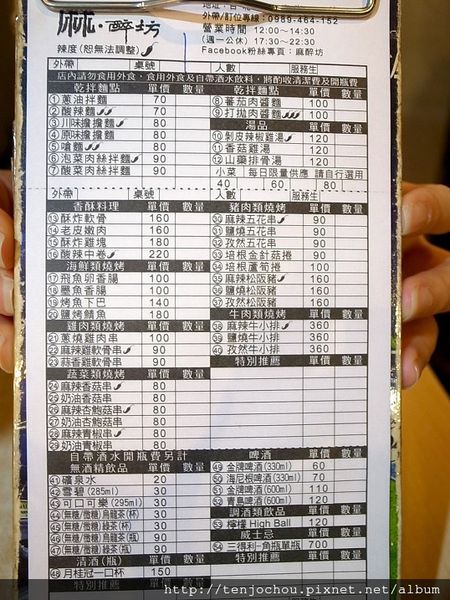 麻·醉坊
辣度(恕無法調整)
外帶/訂位專線：0989-464-152
營業時間：12:00~14:30
(週一公休) 17:30~22:30
Facebook粉絲專頁：麻醉坊
外帶 桌號 人數 服務生
店內請勿食用外食，食用外食及自帶酒水飲料，將酌收清潔費及開瓶費
乾拌麵點 單價 數量
①蔥油拌麵 70
②酸辣麵 70
③川味擔擔麵 80
④原味擔擔麵 80
⑤嗆麵 80
⑥泡菜肉絲拌麵 90
⑦酸辣肉絲拌麵 90
乾拌麵點 單價 數量
⑧蕃茄肉醬麵 100
⑨打拋肉醬麵 100
湯品
⑩剝皮辣椒雞湯 120
⑪香菇雞湯 120
⑫山藥排骨湯 120
小菜 每日限量供應 請自行選用
40 60 80 100
外帶 桌號 人數 服務生
香酥料理 單價 數量
⑬酥炸軟骨 160
⑭老皮嫩肉 160
⑮酥炸雞塊 180
⑯酸辣中卷 220
海鮮類燒烤 單價 數量
⑰飛魚卵香腸 100
⑱墨魚香腸 100
⑲烤魚下巴 140
⑳鹽烤鯖魚 180
雞肉類燒烤 單價 數量
㉑蔥燒雞肉串 100
㉒麻辣雞軟骨串 90
㉓蒜香雞軟骨串 90
蔬菜類燒烤 單價 數量
㉔麻辣香菇串 80
奶油香菇串 80
㉖麻辣杏鮑菇串 80
㉗奶油杏鮑菇串 80
㉘麻辣青椒串 80
㉙奶油青椒串 80
豬肉類燒烤 單價 數量
㉚麻辣五花串 90
㉛鹽燒五花串 90
㉜孜然五花串 90
㉝培根金針菇捲 90
㉞培根蘆筍捲 100
㉟麻辣松阪豬 160
㊱鹽燒松阪豬 160
㊲孜然松阪豬 160
牛肉類燒烤 單價 數量
㊳麻辣牛小排 360
㊴鹽燒牛小排 360
㊵孜然牛小排 360
特別推薦 單價 數量
特別推薦 單價 數量
自帶酒水開瓶費另計
無酒精飲品 單價 數量
㊶礦泉水 20
㊷雪碧(285ml) 30
㊸可口可樂(295ml) 30
㊹(無糖/微糖)烏龍茶(杯) 30
㊺(無糖/微糖)綠茶(杯) 30
㊻(無糖/微糖)烏龍茶(瓶) 90
㊼(無糖/微糖)綠茶(瓶) 90
清酒(瓶) 單價 數量
㊽月桂冠一口杯 150
啤酒 單價 數量
㊾金牌啤酒(330ml) 60
㊿海尼根啤酒(330ml) 70
51金牌啤酒(600ml) 110
52青島啤酒(600ml) 120
調酒類飲品 單價 數量
53檸檬 High Ball 120
威士忌 單價 數量
54三得利-角瓶單瓶 700
特別推薦 單價 數量
http://tenjochou.pixnet.net/album